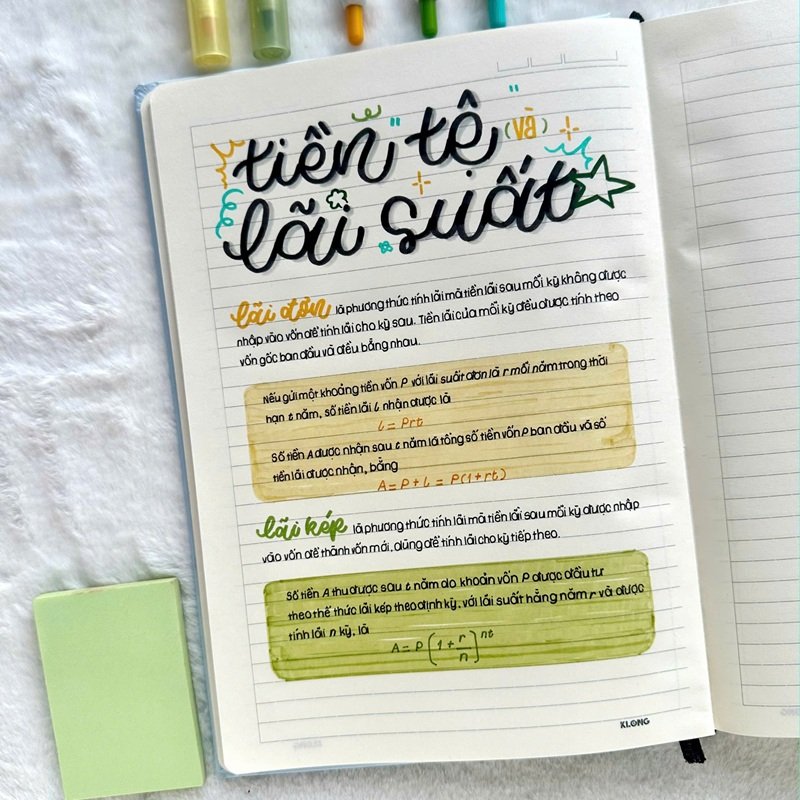 "tiền tệ" (và)
lãi suất
lãi đơn là phương thức tính lãi mà tiền lãi sau mỗi kỳ không được
nhập vào vốn để tính lãi cho kỳ sau. Tiền lãi của mỗi kỳ đều được tính theo
vốn gốc ban đầu và đều bằng nhau.
Nếu gửi một khoảng tiền vốn P với lãi suất đơn là r mỗi năm trong thời
hạn t năm, số tiền lãi l nhận được là
l = Prt
Số tiền A được nhận sau t năm là tổng số tiền vốn P ban đầu và số
tiền lãi được nhận, bằng
A = P + l = P(1 + rt)
lãi kép là phương thức tính lãi mà tiền lãi sau mỗi kỳ được nhập
vào vốn để thành vốn mới, dùng để tính lãi cho kỳ tiếp theo.
Số tiền A thu được sau t năm do khoản vốn P được đầu tư
theo thể thức lãi kép theo định kỳ, với lãi suất hằng năm r và được
tính lãi n kỳ, là
A = P (1 + r/n)^nt
KLONG